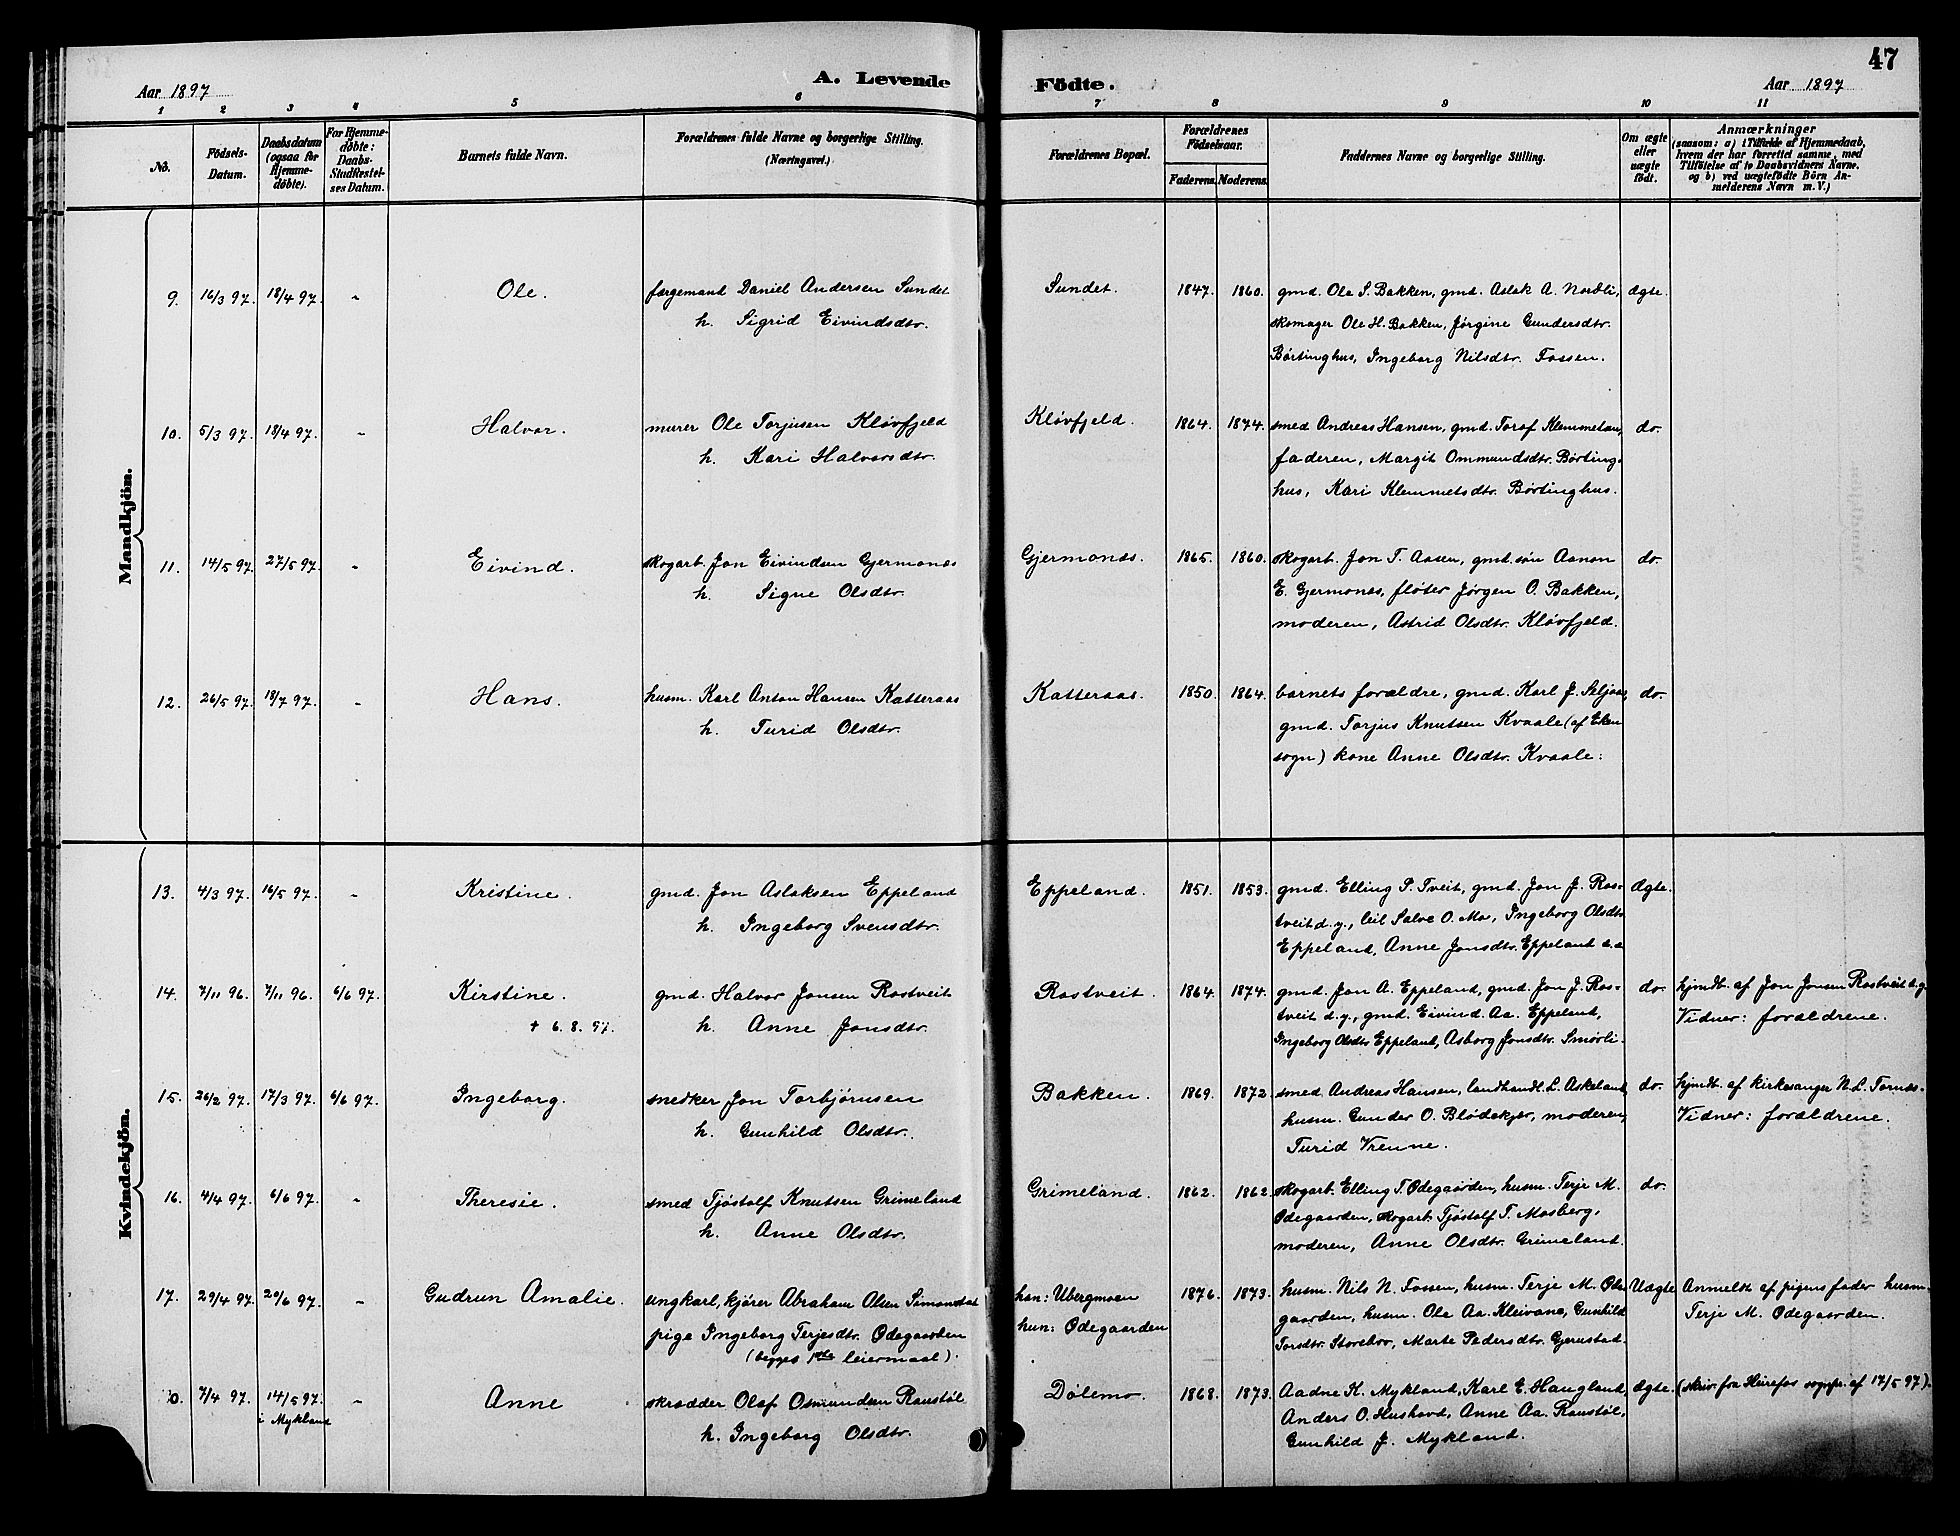 47
A. Levende Födte.
Aar 1897
Aar 1897
1 2 3 4 5 6 7 8 9 10 11
No.
Födsels-Datum.
Daabsdatum (ogsaa for Hjemme-døbte).
For Hjemme-døbte: Daabs-Stadfæstel-ses Datum.
Barnets fulde Navn.
Forældrenes fulde Navne og borgerlige Stilling.
(Næringsvei.)
Forældrenes Bopæl.
Forældrenes Födselsaar.
Faderens. Moderens.
Faddernes Navne og borgerlige Stilling.
Om ægte eller uægte födt.
Anmærkninger
(saasom: a) i Tilfælde af Hjemmedaab,
hvem der har forrettet samme, med
Tilföielse af to Daabsvidners Navne.
og b) ved uægtefödte Börn An-
melderens Navn m.V.)
Mandkjön.
9. 16/3 97. 18/4 97. - Ole. færgemand Daniel Andersen Sundet Sundet. 1847. 1860. gmd. Ole S. Bakken, gmd. Aslak A. Nordli, Ægte.
h. Sigrid Eivindsdtr. skomager Ole H. Bakken, Jørgine Gundersdtr.
Børtinghus, Ingeborg Nilsdtr. Fossen.
10. 5/3 97. 18/4 97. - Halvor. murer Ole Torjusen Kløvfjeld Kløvfjeld. 1864. 1874. smed Andreas Hansen, gmd. Toraf Klemmetsen, do.
h. Kari Halvorsdtr. faderen, Margit Ommundsdtr. Børting-
hus, Kari Klemmetsdtr. Børtinghus.
11. 14/5 97. 27/5 97. - Eivind. skogarb. Jon Eivindsen Gjermones Gjermones. 1865. 1860. skogarb. Jon T. Aasen, gmd. søn Aanon do.
h. Signe Olsdtr. E. Gjermones, fløter Jørgen O. Bakken,
moderen, Astrid Olsdtr. Kløvfjeld.
12. 26/5 97. 18/7 97. - Hans. husm. Karl Anton Hansen Katteraas Katteraas. 1850. 1864. barnets forældre, gmd. Karl J. Seljaas, do.
h. Turid Olsdtr. gmd. Torjus Knutsen Kvaale (af Eken
sogn) kone Anne Olsdtr. Kvaale.
Kvindekjön.
13. 4/3 97. 16/5 97. - Kristine. gmd. Jon Aslaksen Eppeland Eppeland. 1851. 1853. gmd. Elling P. Tveit, gmd. Jon J. Ros- Ægte.
h. Ingeborg Svensdtr. tveit d. y., leil Salve O. Mo, Ingeborg Olsdtr.
Eppeland, Anne Jonsdtr. Eppeland
14. 7/11 96. 7/11 96. 6/6 97. Kirstine. gmd. Halvor Jonsen Rostveit Rostveit. 1864. 1874. gmd. Jon A. Eppeland, gmd. Jon J. Ros- do. hjmdt. af Jon Jonsen Rostveit d. y.
+ 6. 8. 97. h. Anne Jonsdtr. tveit d. y., gmd. Eivind Aa. Eppeland, Vidner: forældrene.
Ingeborg Olsdtr. Eppeland, Asborg Jonsdtr. Smørli.
15. 26/2 97. 17/3 97. 6/6 97. Ingeborg. snedker Jon Torbjørnsen Bakken. 1869. 1872. smed Andreas Hansen, landhandl. L. Askeland, do. hjmdt. af kirkesanger N. L. Tornæs.
h. Gunhild Olsdtr. husm. Gunder O. Blødekjær, moderen, Vidner: forældrene.
Turid Vrenne.
16. 4/4 97. 6/6 97. - Theresie. smed Tjøstolf Knutsen Grimeland Grimeland. 1862. 1862. skogarb. Elling T. Ødegaarden, husm. Terje M. do.
h. Anne Olsdtr. Ødegaarden, skogarb. Tjøstolf T. Mosberg,
moderen, Anne Olsdtr. Grimeland.
17. 29/4 97. 20/6 97. - Gudrun Amalie. ungkarl, kjører Abraham Olsen Simonstad han: Ubergmoen 1876. 1873. husm. Nils N. Fossen, husm. Terje M. Øde- Uægte Anmeldt af pigens fader husm.
pige Ingeborg Terjesdtr. Ødegaarden hun: Ødegaarden gaarden, husm. Ole Aa. Kleivane, Gunhild Terje M. Ødegaarden.
(begges 1ste leiermaal). Torsdtr. Storebro, Marte Pedersdtr. Gjerustad.
0. 7/4 97. 14/5 97. - Anne skrædder Olaf Osmundsen Raustøl Dølemo. 1868. 1873. Aadne K. Mykland, Karl E. Haugland, Ægte. (skriv. fra Heirefos sognepr. af 17/5 97).
i Mykland h. Ingeborg Olsdtr. Anders O. Hushovd, Anne Aa. Raustøl,
Gunhild J. Mykland.